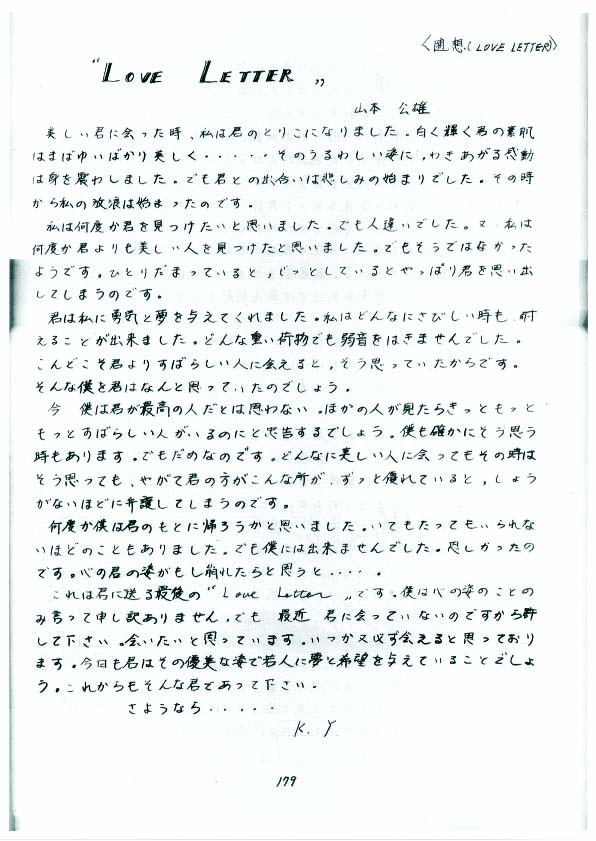 〈随想.(LOVE LETTER)〉
"LOVE LETTER"
山本 公雄
美しい君に会った時、私は君のとりこになりました。白く輝く君の素肌
はまばゆいばかり美しく・・・・・そのうるわしい姿に,わきあがる感動
は身を震わしました。でも君との出合いは悲しみの始まりでした。その時
から私の放浪は始まったのです。
私は何度か君を見つけたいと思いました。でも人違いでした。又、私は
何度か君よりも美しい人を見つけたと思いました。でもそうではなかった
ようです。ひとりだまっていると,じっとしているとやっぱり君を思い出
してしまうのです。
君は私に勇気と夢を与えてくれました。私はどんなにさびしい時も、耐
えることが出来ました。どんな重い荷物でも弱音をはきませんでした。
こんどこそ君よりすばらしい人に会えると,そう思っていたからです。
そんな僕を君はなんと思っていたのでしょう。
今 僕は君が最高の人だとは思わない。ほかの人が見たらきっともっと
もっとすばらしい人がいるのにと忠告するでしょう。僕も確かにそう思う
時もあります。でもだめなのです。どんなに美しい人に会ってもその時は
そう思っても、やがて君の方がこんな所が、ずっと優れていると,しょう
がないほどに弁護してしまうのです。
何度か僕は君のもとに帰ろうかと思いました。いてもたってもいられな
いほどのこともありました。でも僕には出来ませんでした。恐しかったの
です。心の君の姿がもし崩れたらと思うと・・・・。
これは君に送る最後の"Love Letter"です。僕は心の姿のことの
み言って申し訳ありません。でも 最近 君に会っていないのですから許
して下さい。会いたいと思っています。いつか又必ず会えると思っており
ます。今日も君はその優美な姿で若人に夢と希望を与えていることでしょ
う。これからもそんな君であって下さい.
さようなら・・・・・
K. Y.
179